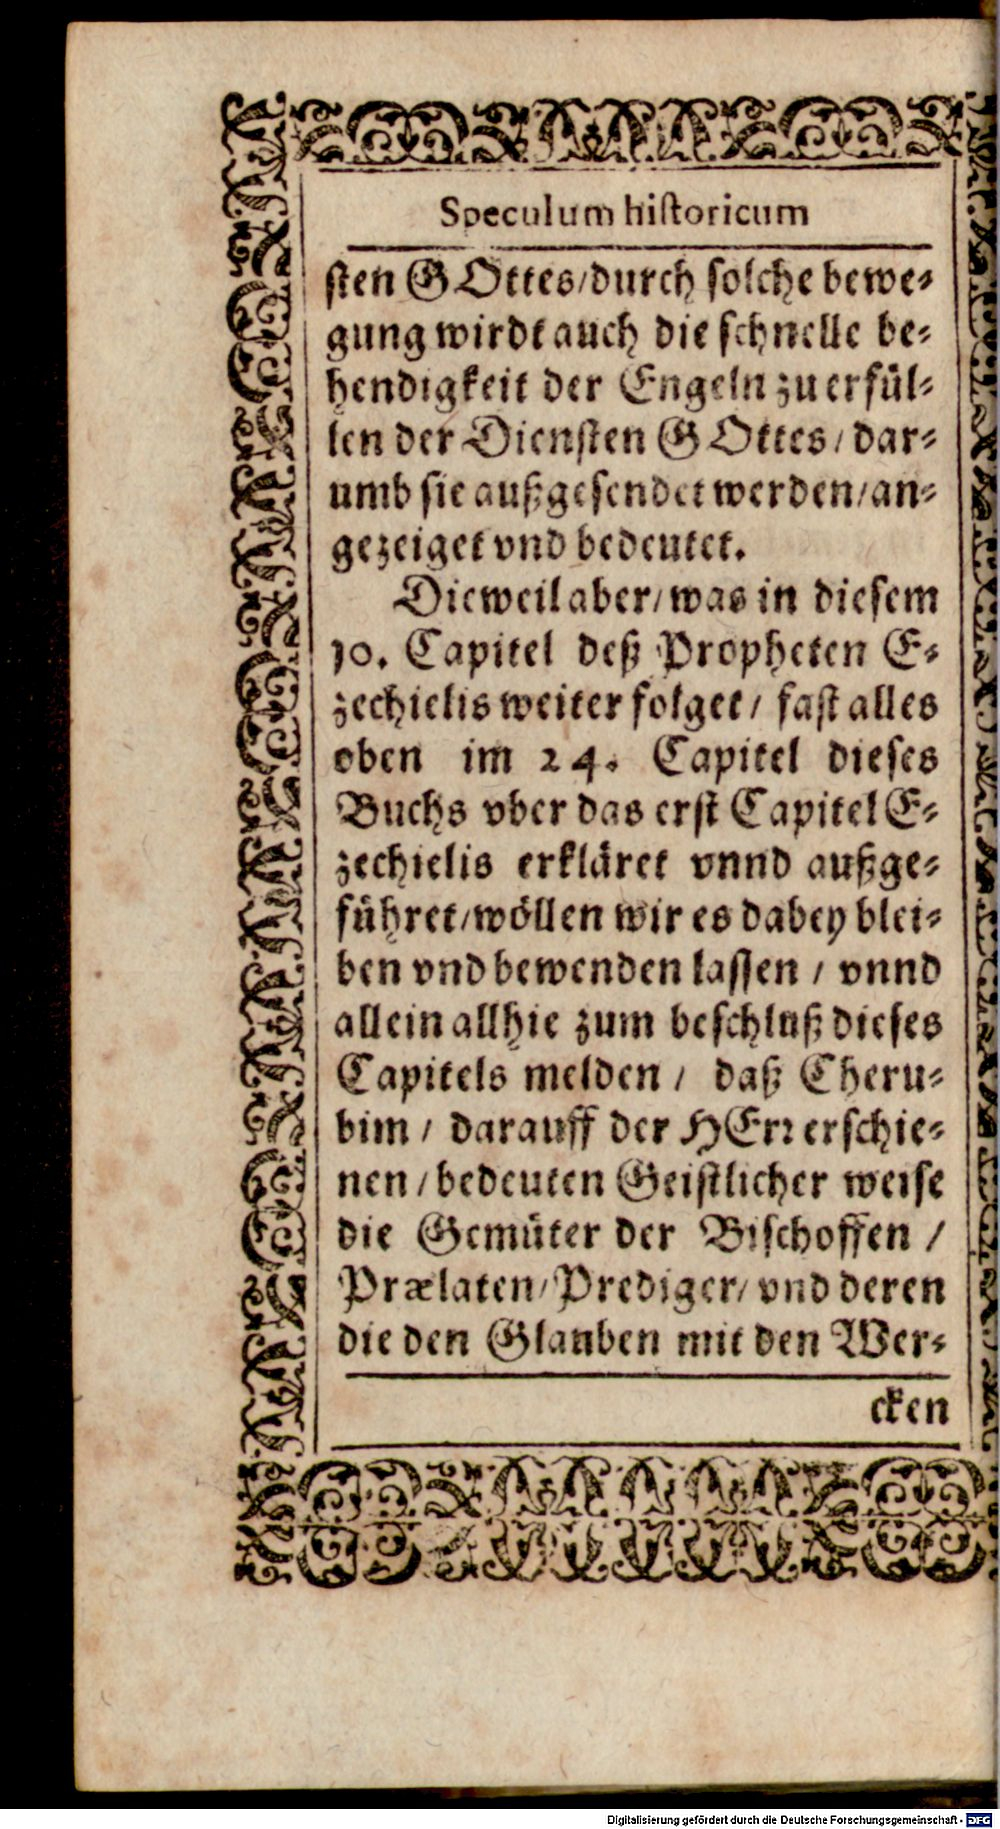 Speculum historicum
sten GOttes/durch solche bewe-
gung wirdt auch die schnelle be-
hendigkeit der Engeln zu erfül-
len der Diensten GOttes / dar-
umb sie außgesendet werden/an-
gezeiget vnd bedeutet.
Dieweil aber/was in diesem
10. Capitel deß Propheten E-
zechielis weiter folget / fast alles
oben im 24. Capitel dieses
Buchs vber das erst Capitel E-
zechielis erkläret vnnd außge-
führet/wöllen wir es dabey blei-
ben vnd bewenden lassen / vnnd
allein allhie zum beschluß dieses
Capitels melden / daß Cheru-
bim / darauff der HErr erschie-
nen / bedeuten Geistlicher weise
die Gemüter der Bischoffen /
Prælaten/Prediger/ vnd deren
die den Glauben mit den Wer-
cken
Digitalisierung gefördert durch die Deutsche Forschungsgemeinschaft - DFG